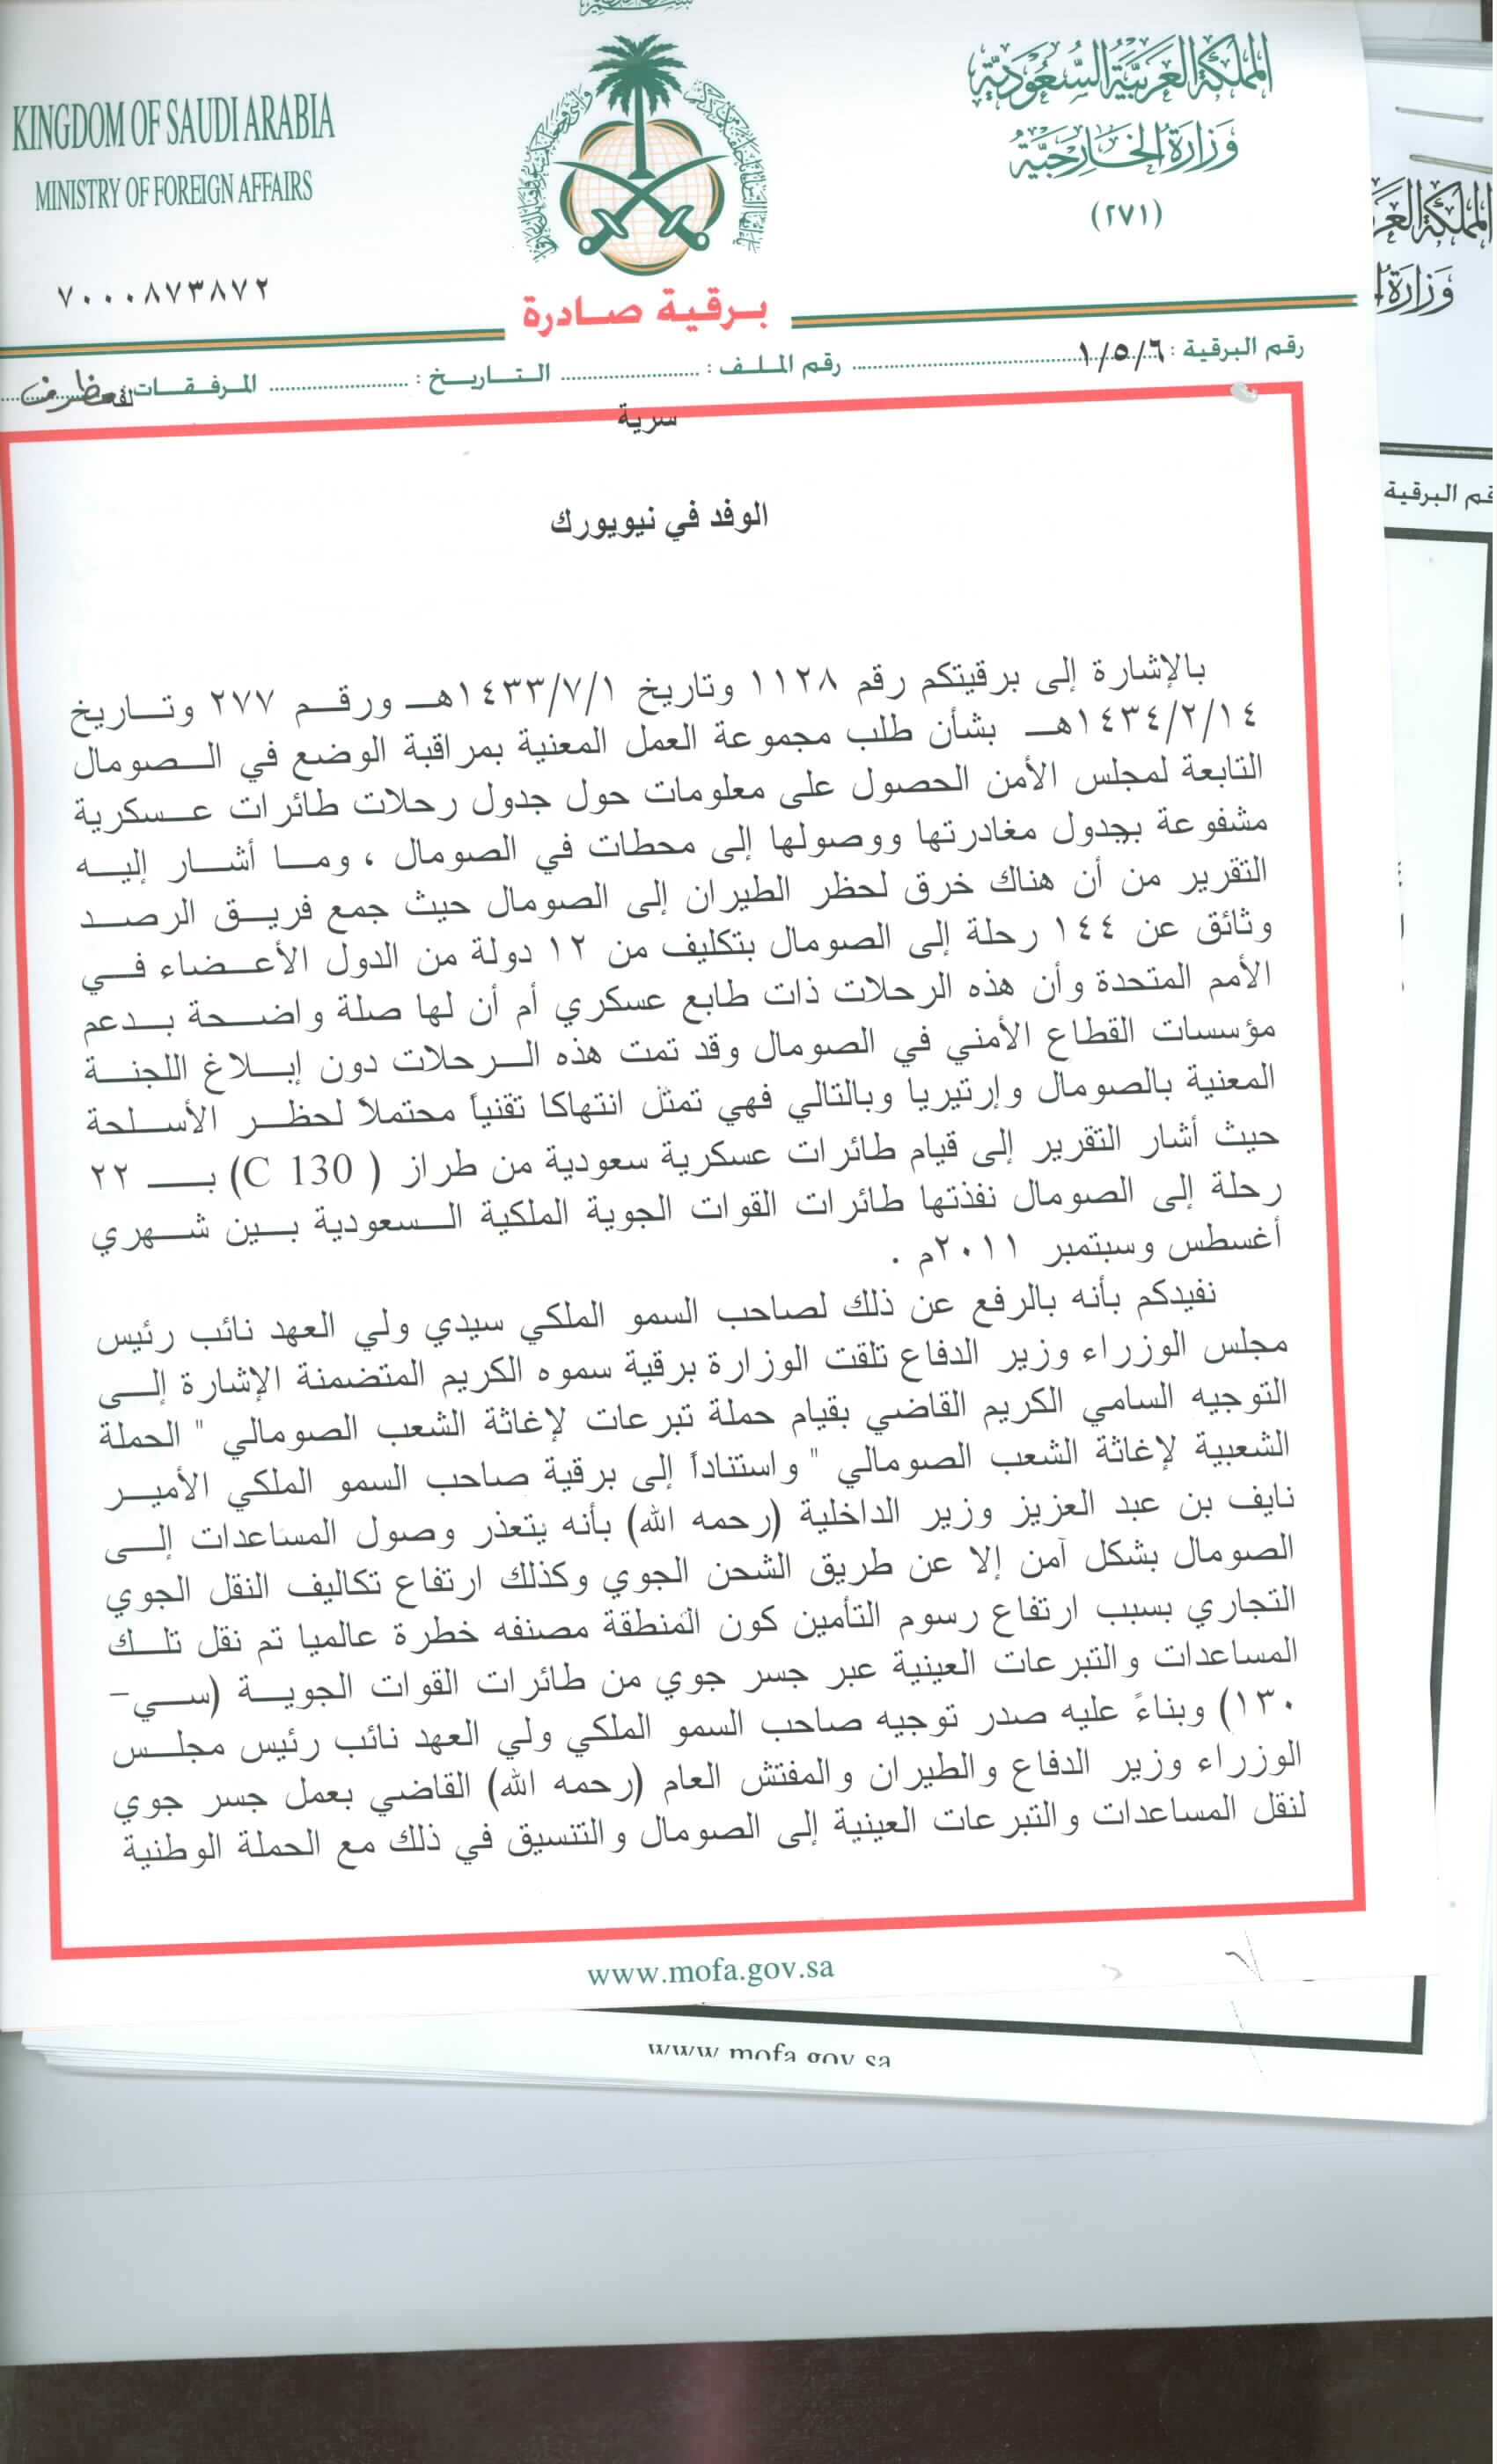 المملكة العربية السعودية
وزارة الخارجية
(٢٧١)
KINGDOM OF SAUDI ARABIA
MINISTRY OF FOREIGN AFFAIRS
٧٠٠٠٨٧٣٨٧٢
برقية صادرة
رقم البرقية : ١/٥/٦ رقم الملف : التاريخ : المرفقات
سرية
الوفد في نيويورك
بالإشارة إلى برقيتكم رقم ١١٢٨ وتاريخ ١٤٣٣/٧/١هـ ورقم ٢٧٧ وتاريخ
١٤٣٤/٢/١٤هـ بشأن طلب مجموعة العمل المعنية بمراقبة الوضع في الصومال
التابعة لمجلس الأمن الحصول على معلومات حول جدول رحلات طائرات عسكرية
مشفوعة بجدول مغادرتها ووصولها إلى محطات في الصومال ، وما أشار إليه
التقرير من أن هناك خرق لحظر الطيران إلى الصومال حيث جمع فريق الرصد
وثائق عن ١٤٤ رحلة إلى الصومال بتكليف من ١٢ دولة من الدول الأعضاء في
الأمم المتحدة وأن هذه الرحلات ذات طابع عسكري أم أن لها صلة واضحة بدعم
مؤسسات القطاع الأمني في الصومال وقد تمت هذه الرحلات دون إبلاغ اللجنة
المعنية بالصومال وإرتيريا وبالتالي فهي تمثل انتهاكا تقنياً محتملاً لحظر الأسلحة
حيث أشار التقرير إلى قيام طائرات عسكرية سعودية من طراز ( C 130) بـ ٢٢
رحلة إلى الصومال نفذتها طائرات القوات الجوية الملكية السعودية بين شهري
أغسطس وسبتمبر ٢٠١١م .
نفيدكم بأنه بالرفع عن ذلك لصاحب السمو الملكي سيدي ولي العهد نائب رئيس
مجلس الوزراء وزير الدفاع تلقت الوزارة برقية سموه الكريم المتضمنة الإشارة إلى
التوجيه السامي الكريم القاضي بقيام حملة تبرعات لإغاثة الشعب الصومالي " الحملة
الشعبية لإغاثة الشعب الصومالي " واستناداً إلى برقية صاحب السمو الملكي الأمير
نايف بن عبد العزيز وزير الداخلية (رحمه الله) بأنه يتعذر وصول المساعدات إلى
الصومال بشكل آمن إلا عن طريق الشحن الجوي وكذلك ارتفاع تكاليف النقل الجوي
التجاري بسبب ارتفاع رسوم التأمين كون المنطقة مصنفه خطرة عالميا تم نقل تلك
المساعدات والتبرعات العينية عبر جسر جوي من طائرات القوات الجوية (سي-
١٣٠) وبناءً عليه صدر توجيه صاحب السمو الملكي ولي العهد نائب رئيس مجلس
الوزراء وزير الدفاع والطيران والمفتش العام (رحمه الله) القاضي بعمل جسر جوي
لنقل المساعدات والتبرعات العينية إلى الصومال والتنسيق في ذلك مع الحملة الوطنية
www.mofa.gov.sa
www mofa gov sa